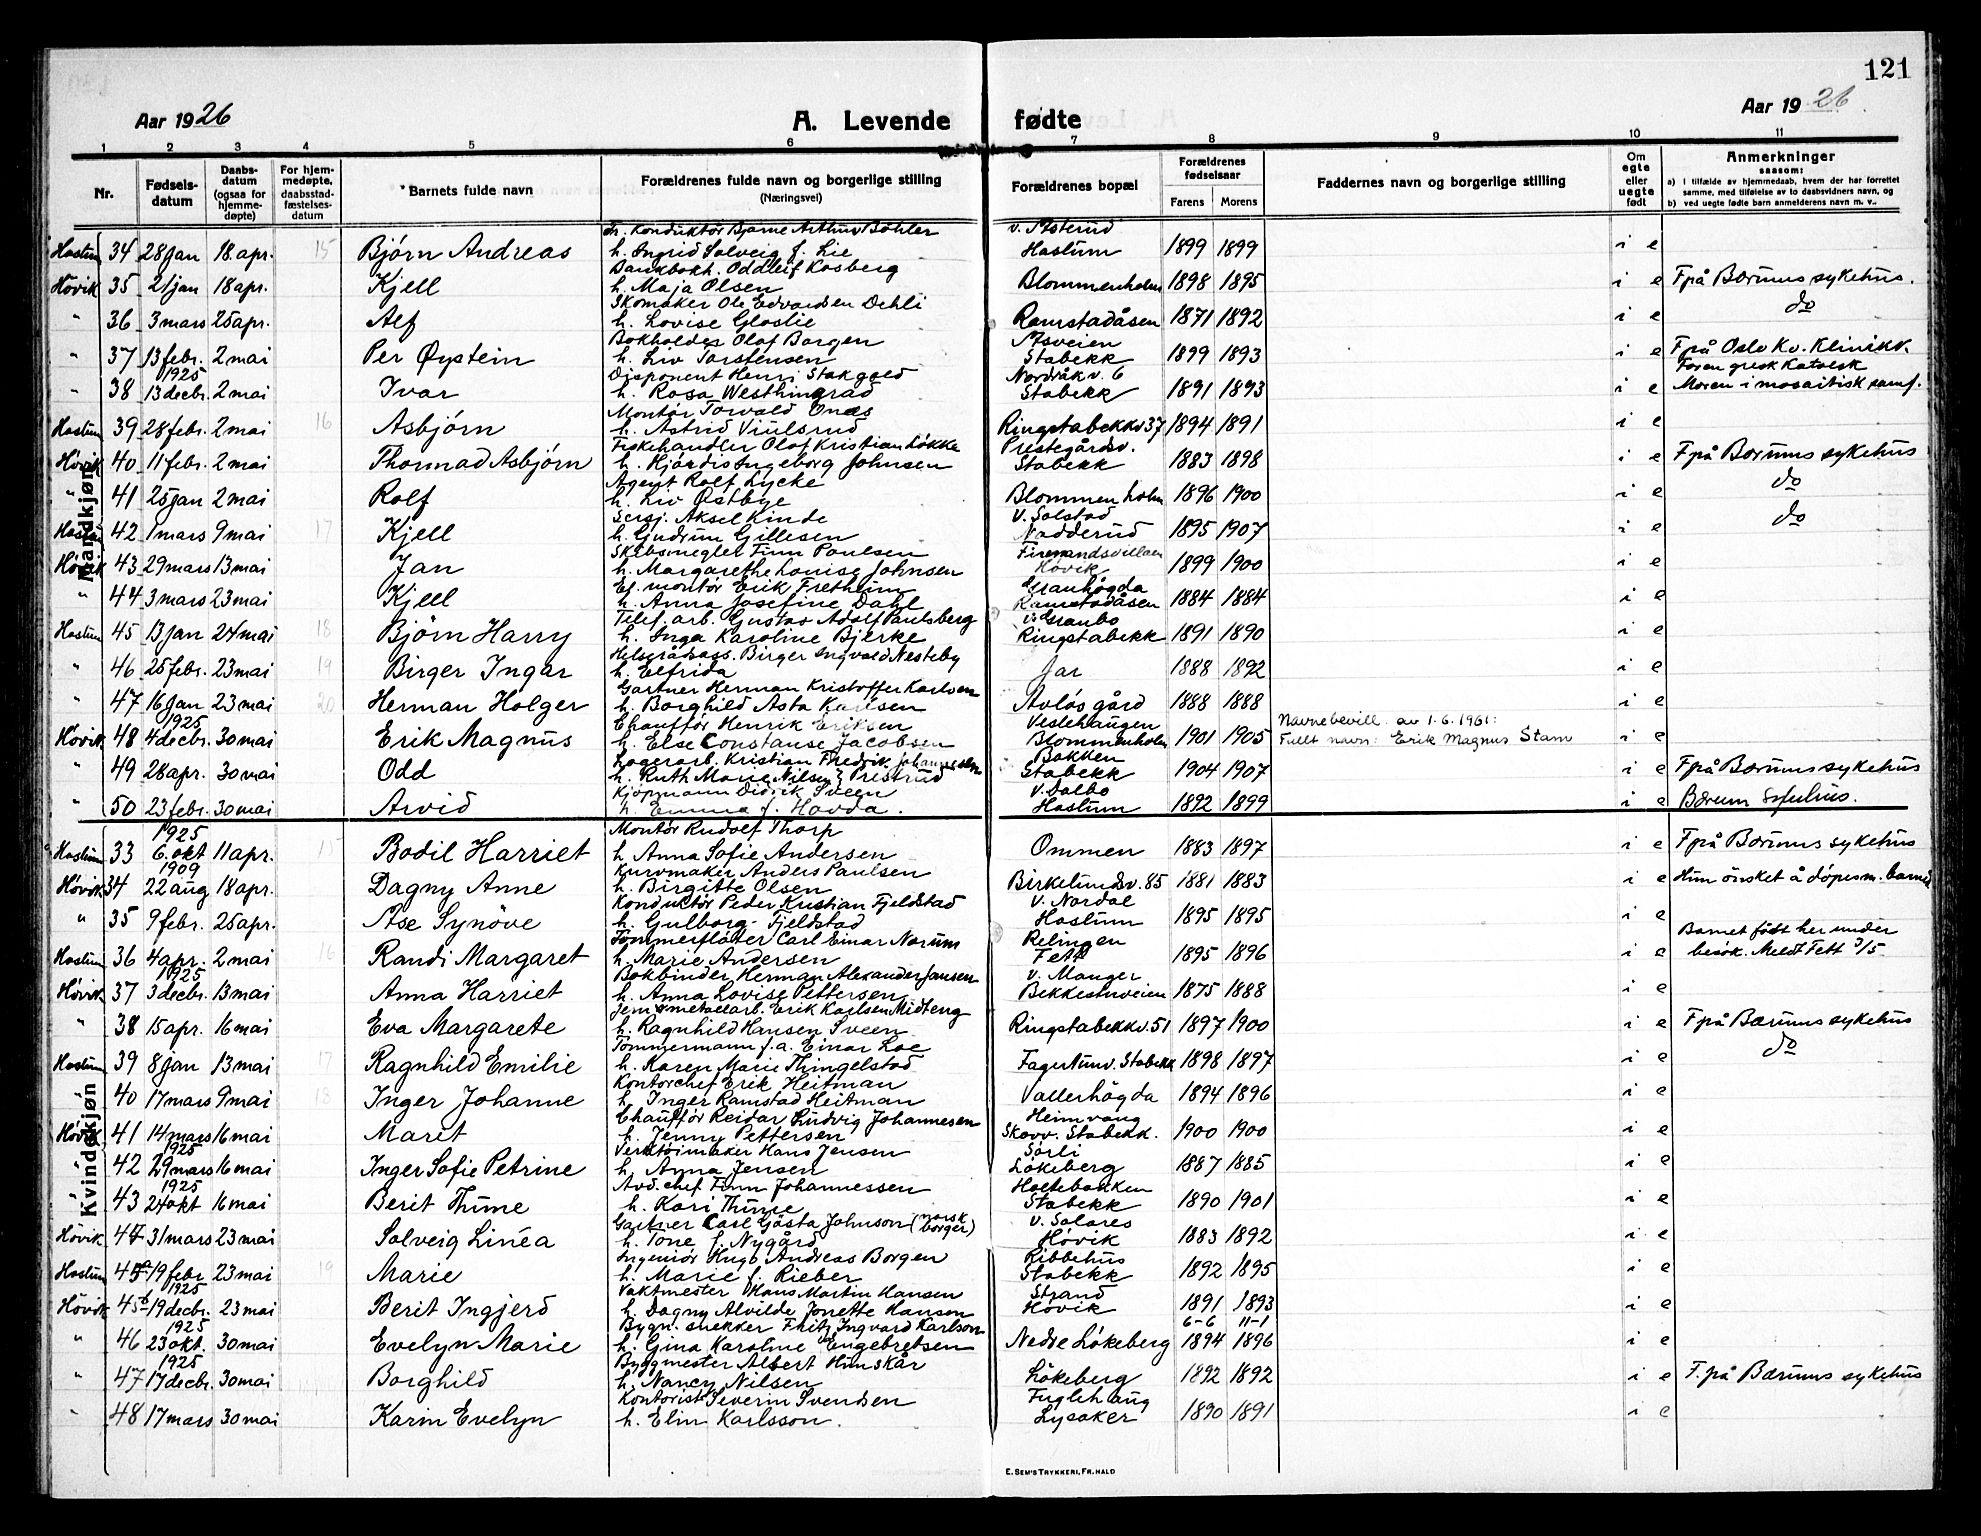 121
Aar 1926 A. Levende fødte Aar 1926
1 2 3 4 5 6 7 8 9 10 11
Nr. Fødsels-datum Daabs-datum (ogsaa for hjemme-døpte) For hjem-medøpte, daabsstad-fæstelses-datum Barnets fulde navn Forældrenes fulde navn og borgerlige stilling (Næringsvei) Forældrenes bopæl Forældrenes fødselsaar Farens Morens Faddernes navn og borgerlige stilling Om egte eller uegte født Anmerkninger saasom: a) I tilfælde av hjemmedaab, hvem der har forrettet samme, med tilføielse av to daabsvidners navn, og b) ved uegte fødte barn anmelderens navn m. v..
Mandkjøn
Konduktør Bjarne Arthur Bøhler v. Åsterud
Haslum 34 28 jan 18. apr. 15 Bjørn Andreas h. Ingrid Solveig f. Lie Haslum 1899 1899 i e
Bankbokh. Oddleif Kosberg
Høvik 35 21 jan 18 apr. Kjell h. Maja Olsen Blommenholm 1898 1895 i e F på Bærums sykehus.
Skomaker Ole Edvardsen Dehli
" 36 3 mars 25 apr. Alf h. Lovise Gloslie Ramstadåsen 1871 1892 i e do
Bokholder Olaf Borgen Åsveien
" 37 13 febr. 2 mai Per Øystein h. Liv Torstensen Stabekk 1899 1893 i e F på Oslo Kv. Klinikk.
1925 Disponent Henri Stakgold Nordråkv. 6 Faren gresk Katolsk
" 38 13 decbr. 2 mai Ivar h. Rosa Westhingrad Stabekk 1891 1893 i e Moren i mosaitisk samf.
Montør Torvald Onæs
Haslum 39 28 febr. 2 mai 16 Asbjørn h. Astrid Viulsrud Ringstabekkv 37 1894 1891 i e
Fiskehandler Olaf Kristian Løkke Prestegårdsv.
Høvik 40 11 febr. 2 mai Thormad Asbjørn h. Hjørdis Ingeborg Johnsen Stabekk 1883 1898 i e F på Bærums sykehus
Agent Rolf Lycke
" 41 25 jan 2 mai Rolf h. Liv Østbye Blommenholm 1896 1900 i e do
Sersj. Aksel Kinde v. Solstad
Haslum 42 1 mars 9 mai 17 Kjell h. Gudrun Gillesen Nadderud 1895 1907 i e do
Skibsmegler Finn Paulsen Firemandsvillaen
Høvik 43 29 mars 13 mai Jan h. Margarethe Louise Johnsen Høvik 1899 1900 i e
El. montør Erik Fretheim Granhøgda
" 44 3 mars 23 mai Kjell h. Anna Josefine Dahl Ramstadåsen 1884 1884 i e
Telef. arb. Gustav Adolf Paulsberg v. Granbo
Haslum 45 13 jan 24 mai 18 Bjørn Harry h. Inga Karoline Bjerke Ringstabekk 1891 1890 i e
Helserådsass. Birger Ingvald Nesteby
" 46 25 febr. 23 mai 19 Birger Ingar h. Elfrida Jar 1888 1892 i e
Gartner Herman Kristoffer Karlsen
" 47 16 jan 23 mai 20 Herman Holger h. Borghild Asta Karlsen Avløs gård 1888 1888 i e
1925 Chauffør Henrik Eriksen Veslehaugen Navnebevill. av 1.6.1961:
Høvik 48 4 decbr. 30 mai Erik Magnus h. Else Constanse Jacobsen Blommenholm 1901 1905 Fullt navn: Erik Magnus Stam i e
Lagerarb. Kristian Fredrik Johannessen Bakken
" 49 28 apr. 30 mai Odd h. Ruth Marie Nilsen Prestrud Stabekk 1904 1907 i e F på Bærums sykehus
Kjøpmann Didrik Sveen v. Dalbo
" 50 23 febr. 30 mai Arvid h. Emma f. Hovda. Haslum 1892 1899 i e Bærum sykehus.
Kvindekjøn
1925 Montør Rudolf Thorp
Haslum 33 6. okt 11 apr. 15 Bodil Harriet h. Anna Sofie Andersen Ommen 1883 1897 i e F på Bærums sykehus
1909 Kurvmaker Anders Paulsen
Høvik 34 22 aug 18 apr. Dagny Anne h. Birgitte Olsen Birkelundsv. 85 1881 1883 i e Hun ønsket å døpes m. barnet
Konduktør Peder Kristian Fjeldstad v. Nordal
" 35 9 febr. 25 apr. Åse Synøve h. Gulborg Fjeldstad Haslum 1895 1895 i e
Tømmerfløter Carl Einar Norum Relingen Barnet født her under
Haslum 36 4 apr. 2 mai 16 Randi Margaret h. Marie Andersen Fett 1895 1896 i e besøk. Meldt Fett 3/5
1925 Bokbinder Herman Alexander Jansen v. Manger
Høvik 37 3 decbr. 13 mai Anna Harriet h. Anna Lovise Pettersen Bekkestuveien 1875 1888 i e
Jern & metallarb. Erik Karlsen Midteng
" 38 15 apr. 16 mai Eva Margarete h. Ragnhild Hansen Sveen Ringstabekkv. 51 1897 1900 i e F på Bærums sykehus
Tømmermann f.a. Einar Loe
Haslum 39 8 jan 13 mai 17 Ragnhild Emilie h. Karen Marie Thingelstad Fagertunv. Stabekk 1898 1897 i e do
Kontorchef Erik Heitman
" 40 17 mars 9 mai 18 Inger Johanne h. Inger Ramstad Heitman Vallerhøgda 1894 1896 i e
Chauffør Reidar Ludvig Johannesen Heimvang
Høvik 41 14 mars 16 mai Maret h. Jenny Pettersen Skovv. Stabekk. 1900 1900 i e
1925 Verktøimaker Hans Jensen Sørli
" 42 29 mars 16 mai Inger Sofie Petrine h. Anna Jensen Løkeberg 1887 1885 i e
1925 Avd. chef Finn Johannessen Holtebakken
" 43 24 okt 16 mai Berit Thime h. Kari Thime Stabekk 1890 1901 i e
Gartner Carl Gøsta Johnson (norsk borger) v. Solares
Høvik 44 31 mars 23 mai Solveig Linéa h. Tone f. Nygård Høvik 1883 1892 i e
Ingeniør Hugo Andreas Borgen Ribbehus
Haslum 45a 19 febr 23 mai 19 Marie h. Marie f. Rieber Stabekk 1892 1895 i e
1925 Vaktmester Hans Martin Hansen Strand
Høvik 45b 19 decbr. 23 mai Berit Ingjerd h. Dagny Alvilde Jonette Hansen Høvik 1891 1893 i e
1925 Bygn. snekker Fritz Ingvard Karlson 6-6 11-1
" 46 23 okt. 30 mai Evelyn Marie h. Gina Karoline Engebretsen Nedre Løkeberg 1894 1896 i e
1925 Byggmester Albert Hunskår
" 47 17 decbr. 30 mai Borghild h. Nancy Nilsen Løkeberg 1892 1892 i e F. på Bærums sykehus
Kontorist Severin Svendsen Fuglehaug
" 48 17 mars 30 mai Karin Evelyn h. Elin Karlsson. Lysaker 1890 1891 i e
E. SEM'S TRYKKERI, FR. HALD